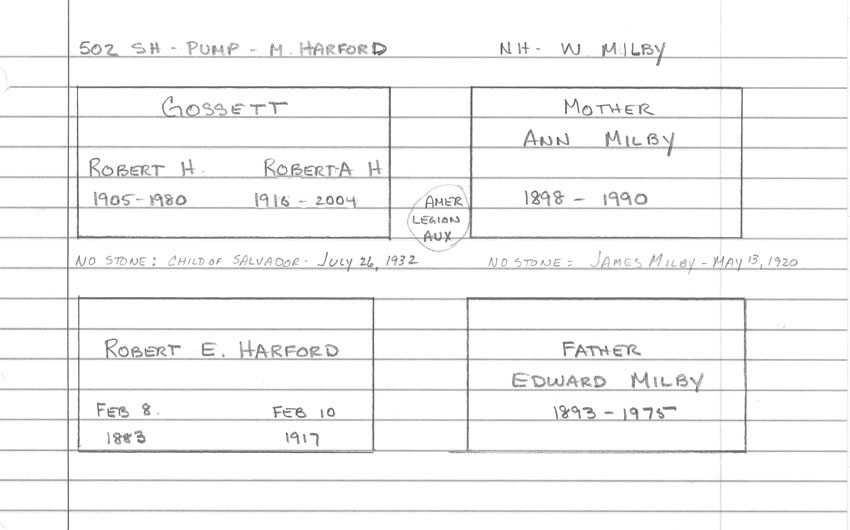 502 SH - PUMP - M. HARFORD
NH - W. MILBY
GOSSETT
ROBERT H. ROBERTA H
1905 - 1980 1916 - 2004
AMER
LEGION
AUX
MOTHER
ANN MILBY
1898 - 1990
NO STONE: CHILD OF SALVADOR - JULY 26, 1932
NO STONE: JAMES MILBY - MAY 13, 1920
ROBERT E. HARFORD
FEB 8. FEB 10
1883 1917
FATHER
EDWARD MILBY
1893 - 1975